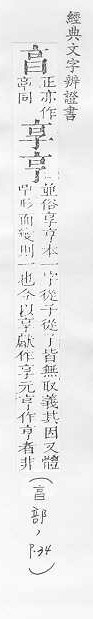 經典文字辨證書
亯正亦作享亨並俗享亨本一字從子從了皆無取義其因又體
亭同
帋形面變則一也今以享獻作享元亨作亨者非
(亯部,P.34)